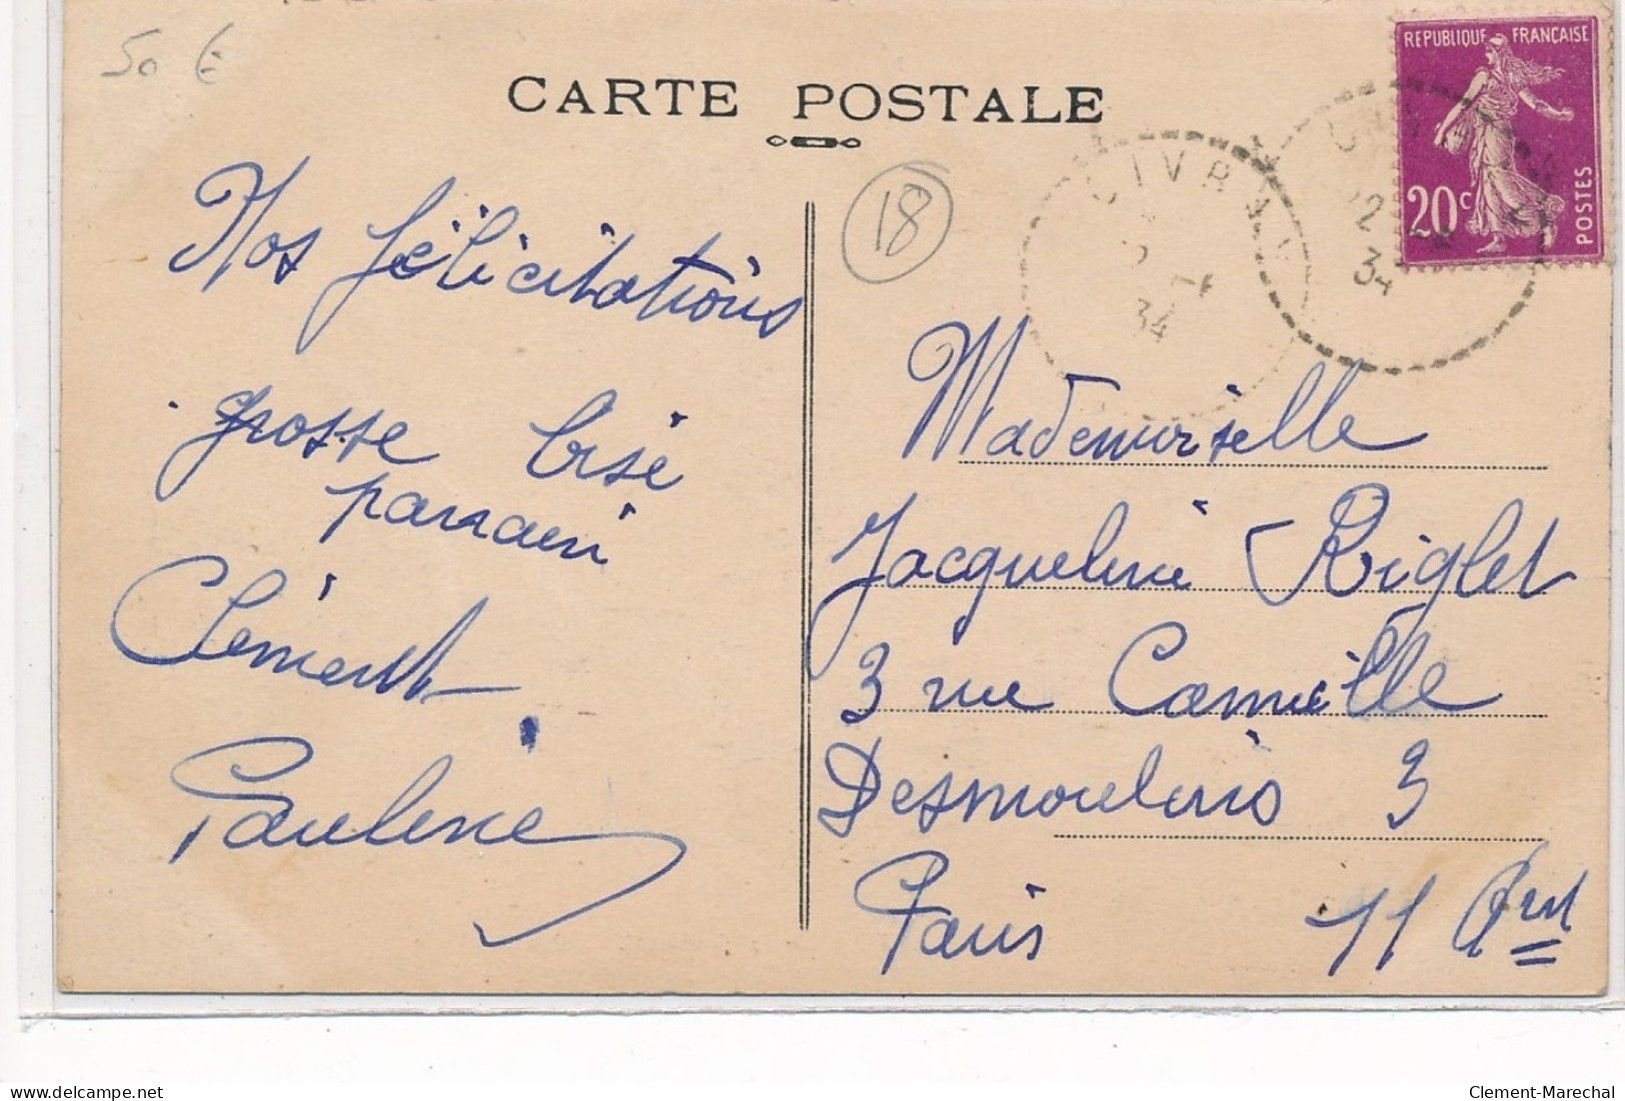 50 €
CARTE POSTALE
REPUBLIQUE FRANÇAISE
20c
POSTES
CIVRAY
34
34
18
Nos félicitations
grosse bise
parrain
Clément
Pauline
Mademoiselle
Jacqueline Riglet
3 rue Camille
Desmoulins 3
Paris 11 Arrt
delcampe.net
Clement-Marechal